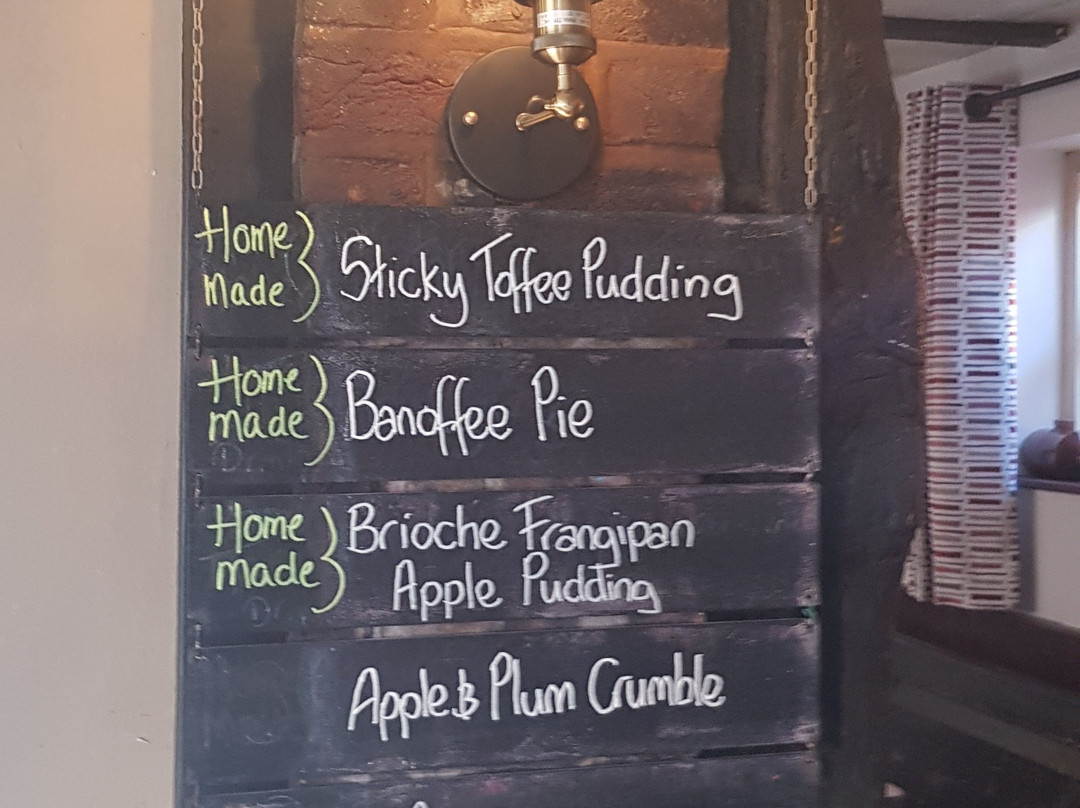 Home
made } Sticky Toffee Pudding
Home
made } Banoffee Pie
Home
made } Brioche Frangipan
Apple Pudding
Apple & Plum Crumble